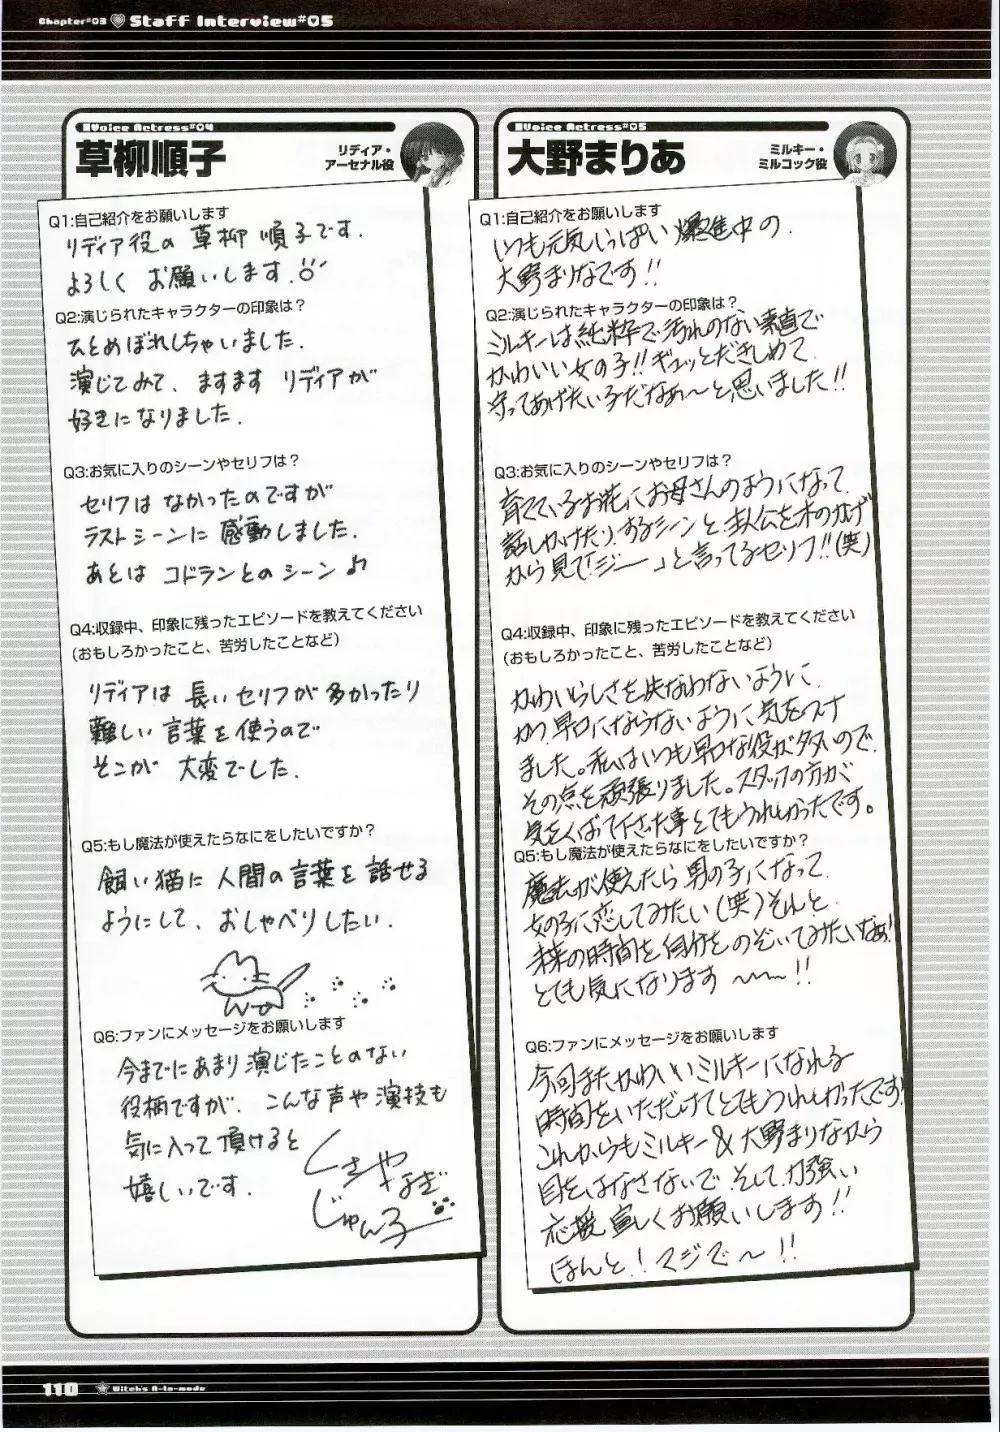 Chapter#03 Staff Interview#05
Voice Actress#04
草柳順子
リディア・
アーセナル役
Q1:自己紹介をお願いします
リディア役の 草柳 順子です.
よろしく お願いします.
Q2:演じられたキャラクターの印象は？
ひとめぼれしちゃいました.
演じてみて、ますます リディアが
好きになりました.
Q3:お気に入りのシーンやセリフは？
セリフは なかったのですが
ラストシーンに 感動しました.
あとは コドランとの シーン♪
Q4:収録中、印象に残ったエピソードを教えてください
（おもしろかったこと、苦労したことなど）
リディアは 長い セリフが 多かったり
難しい 言葉を 使うので
そこが 大変でした.
Q5:もし魔法が使えたらなにをしたいですか？
飼い猫に 人間の 言葉を 話せる
ようにして、おしゃべりしたい.
Q6:ファンにメッセージをお願いします
今までにあまり演じたことのない
役柄ですが、こんな声や演技も
気に入って 頂けると
嬉しいです.
くさやなぎ
じゅん子
Voice Actress#05
大野まりあ
ミルキー・
ミルコック役
Q1:自己紹介をお願いします
いつも元気いっぱい 爆進中の
大野まりなです!!
Q2:演じられたキャラクターの印象は？
ミルキーは純粋で汚れのない素直で
かわいい女の子!!ギュッとだきしめて
守ってあげたい子だなぁ～と思いました!!
Q3:お気に入りのシーンやセリフは？
育てているお花にお母さんのようになって
話しかけたりするシーンと、主人公を木のかげ
から見て「ジー」と言ってるセリフ!!(笑)
Q4:収録中、印象に残ったエピソードを教えてください
（おもしろかったこと、苦労したことなど）
かわいらしさを失なわないように
かつ早口にならないように気をつけ
ました。私はいつも早口な役が多いので
その点を頑張りました。スタッフの方が
気をくばって下さった事とてもうれしかったです。
Q5:もし魔法が使えたらなにをしたいですか？
魔法が使えたら男の子になって
女の子に恋してみたい(笑)それと
未来の時間を自分をのぞいてみたいなぁ!
とても気になります～～!!
Q6:ファンにメッセージをお願いします
今回またかわいいミルキーになれる
時間をいただけてとてもうれしかったです!
これからもミルキー&大野まりなから
目をはなさないで そして力強い
応援宜しくお願いします!!
ほんと! マジで～!!
110 Witch's A-la-mode